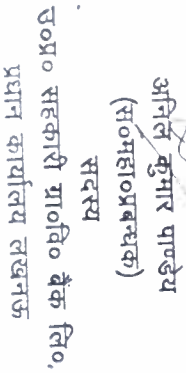 अनिल कुमार पाण्डेय
(स०महा०प्रबन्धक)
सदस्य
उ०प्र० सहकारी ग्रा०वि० बैंक लि०,
प्रधान कार्यालय लखनऊ